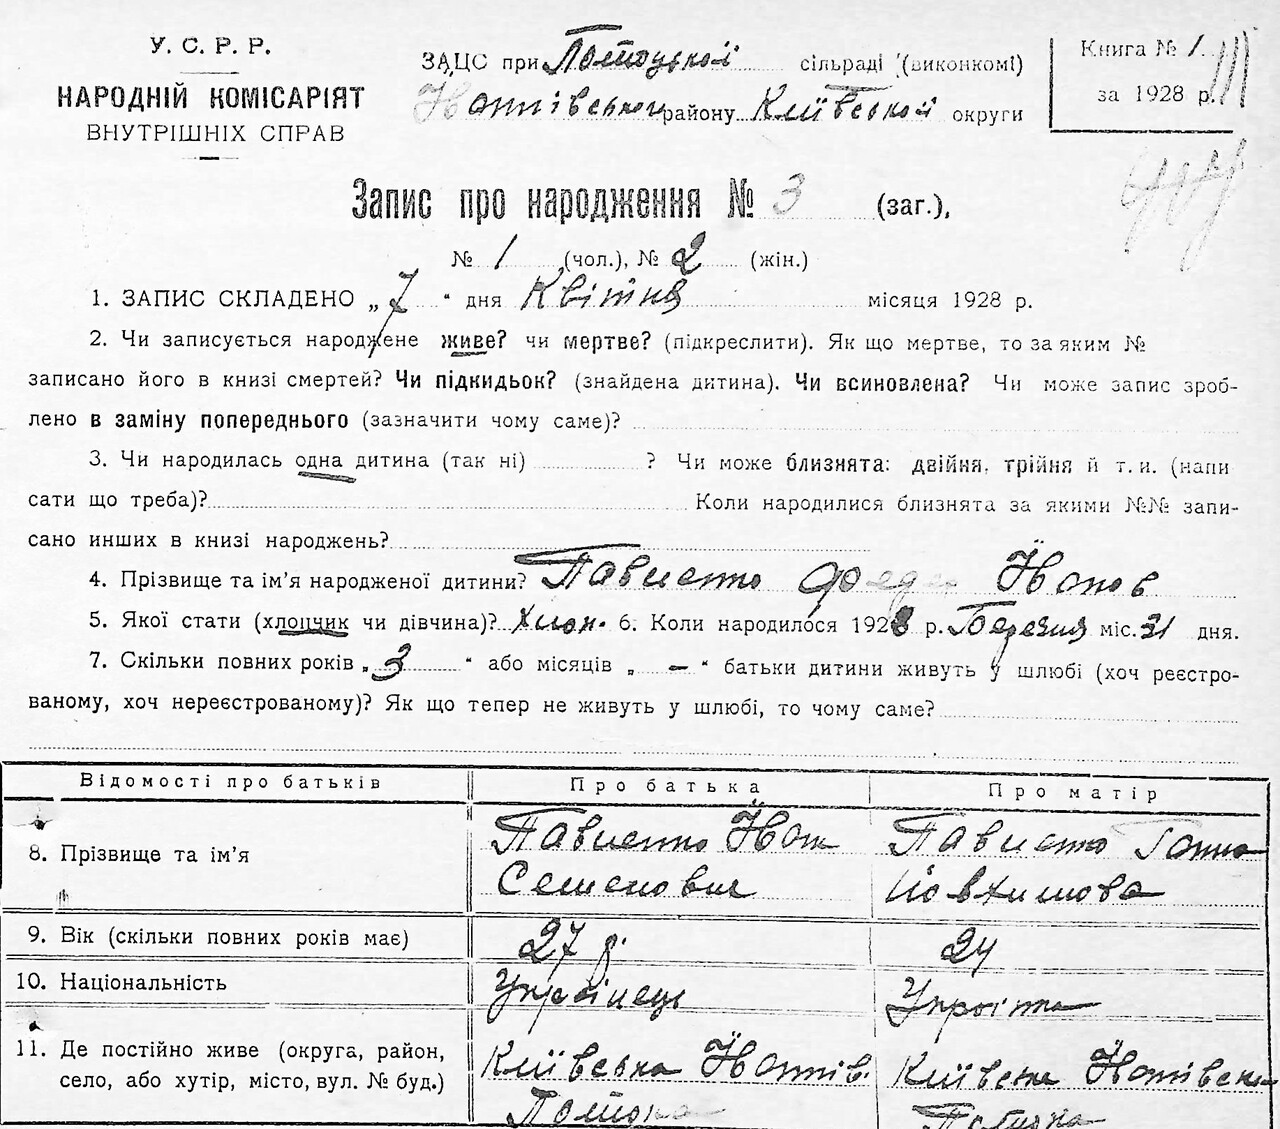 У. С. Р. Р.
НАРОДНІЙ КОМІСАРІЯТ
ВНУТРІШНІХ СПРАВ
ЗАЦС при Потоцькой сільраді (виконкомі)
району Київської округи
Книга № 1
за 1928 р.
Запис про народження № 3 (заг.),
№ 1 (чол.), № 2 (жін.)
1. ЗАПИС СКЛАДЕНО „ 7 “ дня Квітня місяця 1928 р.
2. Чи записується народжене живе? чи мертве? (підкреслити). Як що мертве, то за яким №
записано його в книзі смертей? Чи підкидьок? (знайдена дитина). Чи всиновлена? Чи може запис зроб-
лено в заміну попереднього (зазначити чому саме)?
3. Чи народилась одна дитина (так ні) ? Чи може близнята: двійня, трійня й т. и. (напи
сати що треба)? Коли народилися близнята за якими №№ запи-
сано инших в книзі народжень?
4. Прізвище та ім’я народженої дитини?
5. Якої стати (хлопчик чи дівчина)? 6. Коли народилося 1928 р. Березня міс. 31 дня.
7. Скільки повних років „ 3 “ або місяців „ – “ батьки дитини живуть у шлюбі (хоч реєстро-
ваному, хоч нереєстрованому)? Як що тепер не живуть у шлюбі, то чому саме?
Відомості про батьків Про батька Про матір
8. Прізвище та ім’я
Семенович
9. Вік (скільки повних років має) 27 р. 24
10. Національність Українець Українка
11. Де постійно живе (округа, район,
село, або хутір, місто, вул. № буд.)
Київська